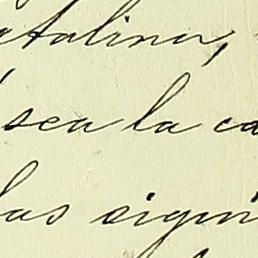 atalina,
sea la ca
las signi